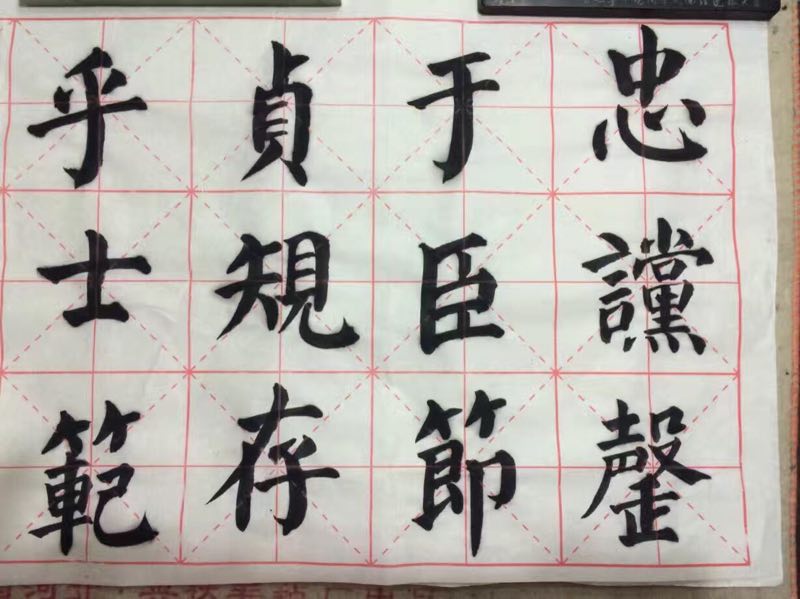 忠讜罄
于臣節
貞䂓存
乎士範